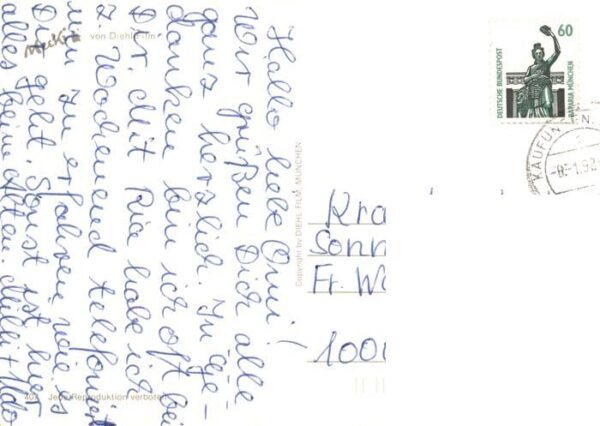 Hallo liebe Omi!
Wir grüßen Dich alle
ganz herzlich. In Ge-
danken bin ich oft bei
Dir. Mit Pia habe ich
z. Wochenend telefoniert
um zu erfahren, wie es
Dir geht. Sonst ist hier
alles beim Alten.
Mecki
von Diehl-Film
407 Jede Reproduktion verboten
Copyright by DIEHL FILM, MÜNCHEN
Kra
Sonn
Fr. We
1000
DEUTSCHE BUNDESPOST
60
BAVARIA MÜNCHEN
KAUFUN
EN
-1.92